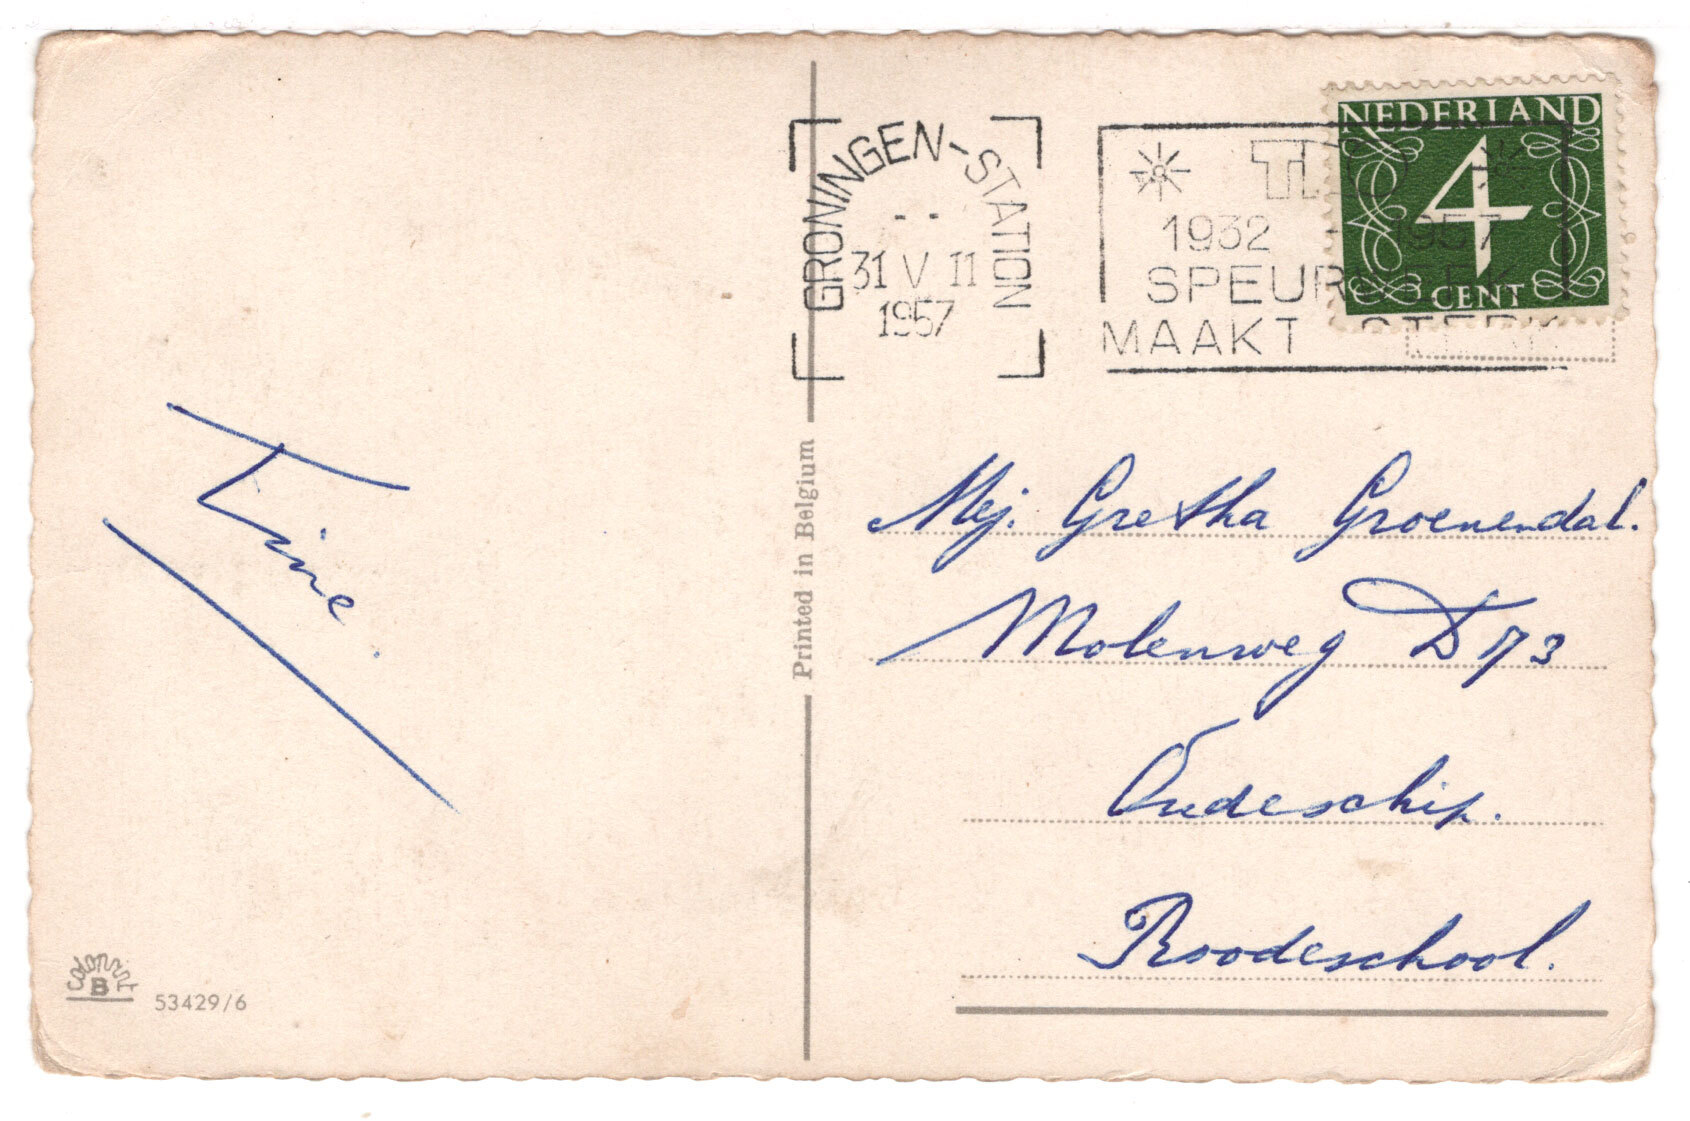 GRONINGEN-STATION
31 V 11
1957
1932 - 1957
SPEURWERK
MAAKT STERK
NEDERLAND
4
CENT
Tine.
Printed in Belgium
Mej. Gretha Groenendal.
Molenweg D 73
Oudeschip.
Roodeschool.
Colorprint
B
53429/6